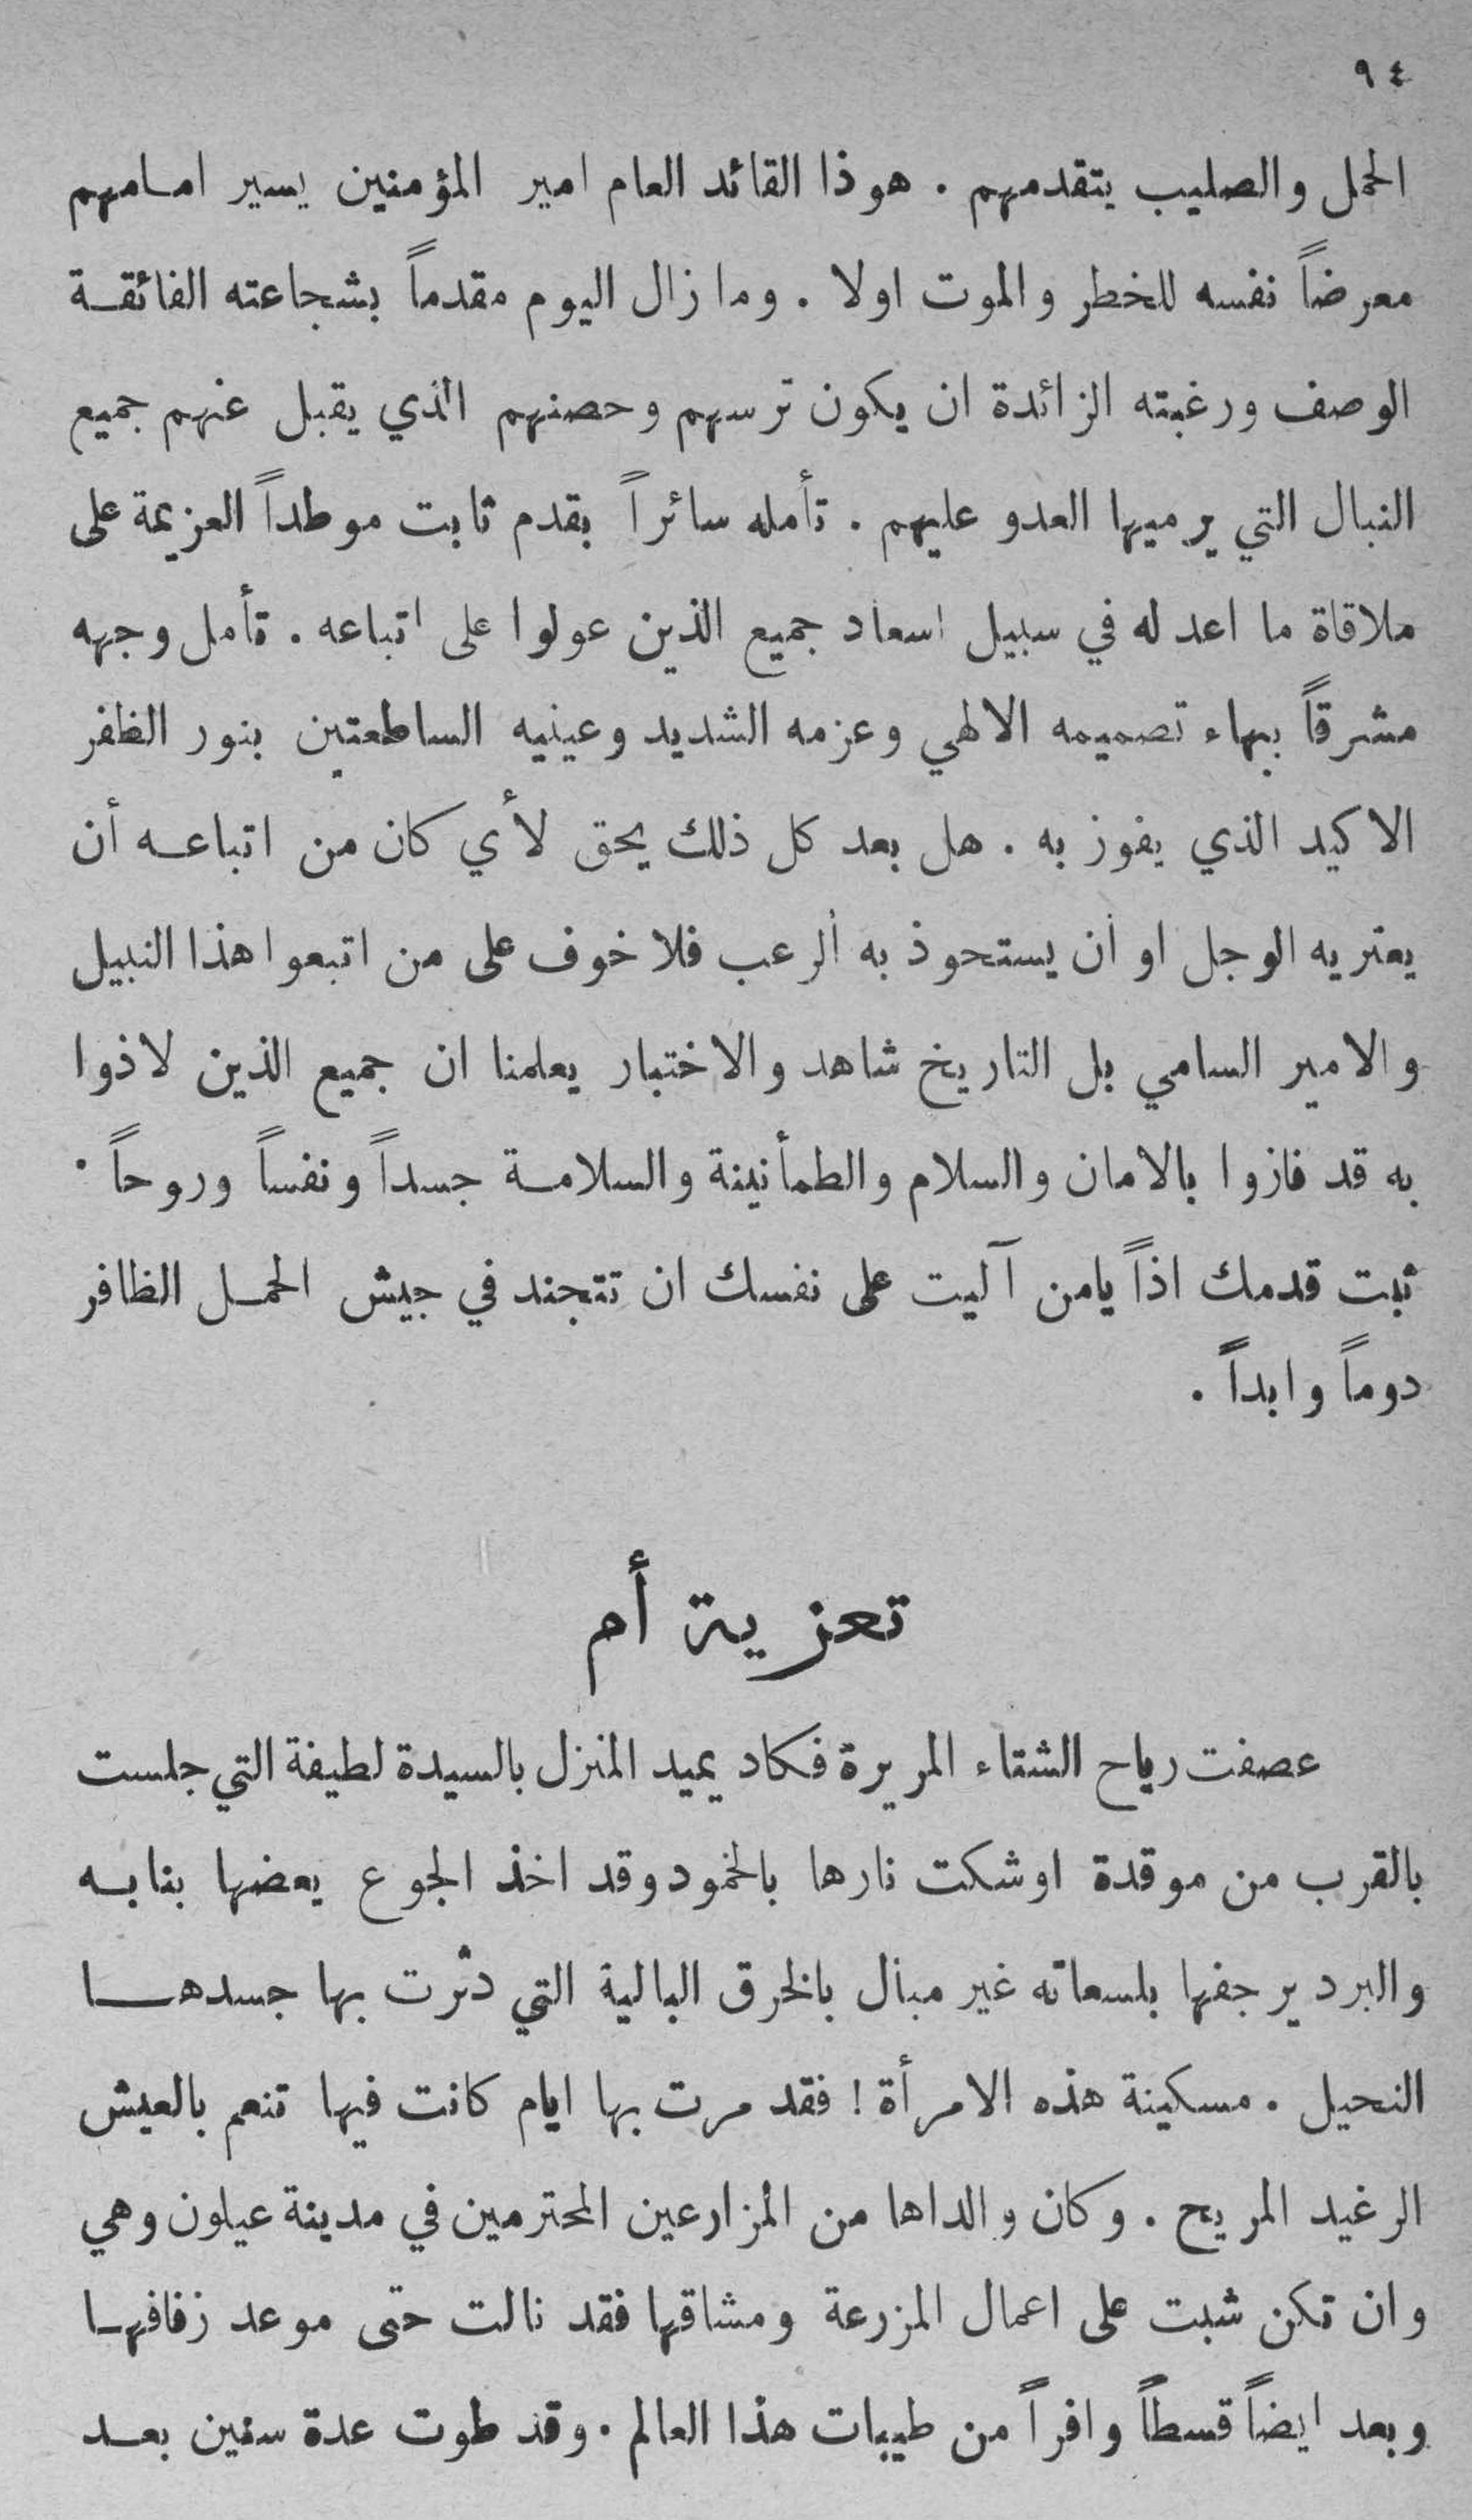 ٩٤
الحمل والصليب يتقدمهم . هوذا القائد العام امير المؤمنين يسير امامهم
معرضاً نفسه للخطر والموت اولا . وما زال اليوم مقدماً بشجاعته الفائقة
الوصف ورغبته الزائدة ان يكون ترسهم وحصنهم الذي يقبل عنهم جميع
النبال التي يرميها العدو عليهم . تأمله سائراً بقدم ثابت موطداً العزيمة على
ملاقاة ما اعد له في سبيل اسعاد جميع الذين عولوا على اتباعه . تأمل وجهه
مشرقاً ببهاء تصميمه الالهي وعزمه الشديد وعينيه الساطعتين بنور الظفر
الاكيد الذي يفوز به . هل بعد كل ذلك يحق لأي كان من اتباعه أن
يعتريه الوجل او ان يستحوذ به الرعب فلا خوف على من اتبعوا هذا النبيل
والامير السامي بل التاريخ شاهد والاختبار يعلمنا ان جميع الذين لاذوا
به قد فازوا بالامان والسلام والطمأنينة والسلامة جسداً ونفساً وروحاً .
ثبت قدمك اذاً يامن آليت على نفسك ان تتجند في جيش الحمل الظافر
دوماً وابداً .
تعزية أم
عصفت رياح الشتاء المريرة فكاد يميد المنزل بالسيدة لطيفة التي جلست
بالقرب من موقدة اوشكت نارها بالخمود وقد اخذ الجوع يعضها بنابه
والبرد يرجفها بلسعاته غير مبال بالخرق البالية التي دثرت بها جسدها
النحيل . مسكينة هذه الامرأة ! فقد مرت بها ايام كانت فيها تنعم بالعيش
الرغيد المريح . وكان والداها من المزارعين المحترمين في مدينة عيلون وهي
وان تكن شبت على اعمال المزرعة ومشاقها فقد نالت حتى موعد زفافها
وبعد ايضاً قسطاً وافراً من طيبات هذا العالم . وقد طوت عدة سنين بعد